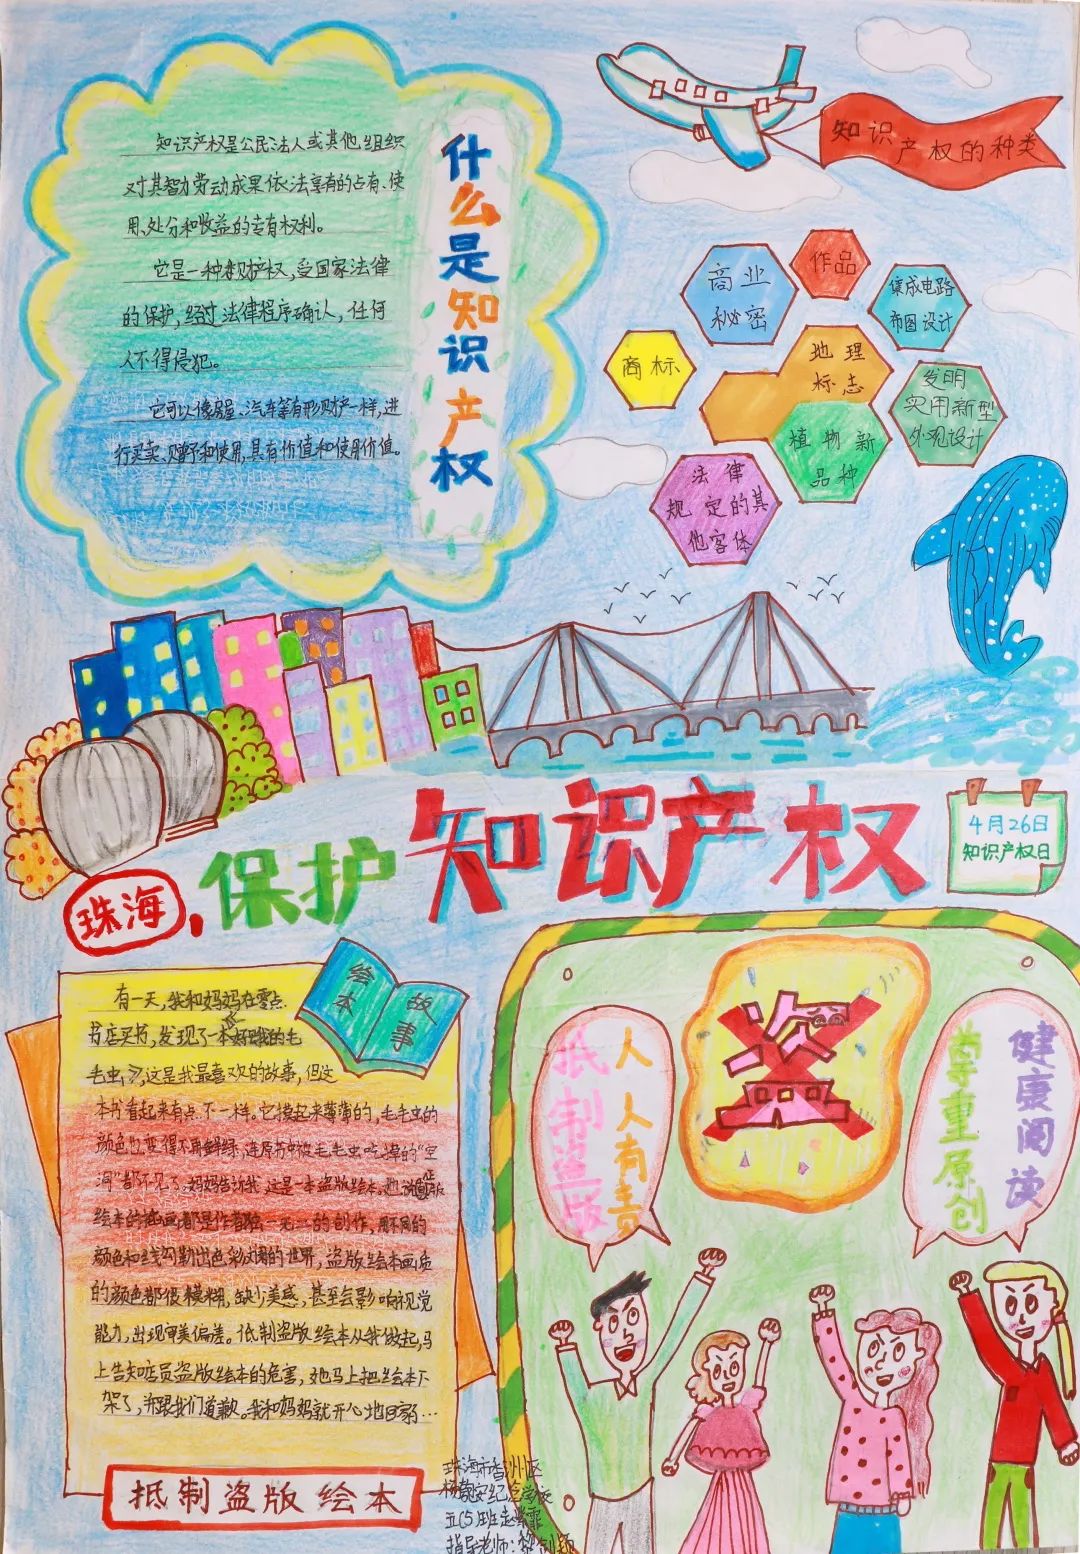 什么是知识产权
知识产权是公民法人或其他组织
对其智力劳动成果依法享有的占有、使
用、处分和收益的专有权利。
它是一种财产权,受国家法律
的保护,经过法律程序确认,任何
人不得侵犯。
它可以像房屋、汽车等有形财产一样,进
行买卖、赠予和使用,具有价值和使用价值。
知识产权的种类
作品
商业
秘密
集成电路
布图设计
商标
地理
标志
发明
实用新型
外观设计
植物新
品种
法律
规定的其
他客体
珠海,保护知识产权
4月26日
知识产权日
绘本故事
有一天,我和妈妈在零点
书店买书,发现了一本好饿的毛
毛虫》,这是我最喜欢的故事,但这
本书看起来有点不一样。它摸起来薄薄的,毛毛虫的
颜色也变得不再鲜绿,连原书中被毛毛虫吃掉的“空
洞”都不见了。妈妈告诉我这是一本盗版绘本,她说正版
绘本的插画都是作者独一无二的创作,用不同的
颜色和线勾勒出色彩斑斓的世界,盗版绘本画质
的颜色都很模糊,缺少美感,甚至会影响视觉
能力,出现审美偏差。低制盗版绘本从我做起,马
上告知店员盗版绘本的危害,她马上把绘本下
架了,并跟我们道歉。我和妈妈就开心地回家…
抵制盗版绘本
人人有责
抵制盗版
盗
健康阅读
尊重原创
珠海市香洲区
纪念学校
五(5)班赵紫霏
指导老师:黎